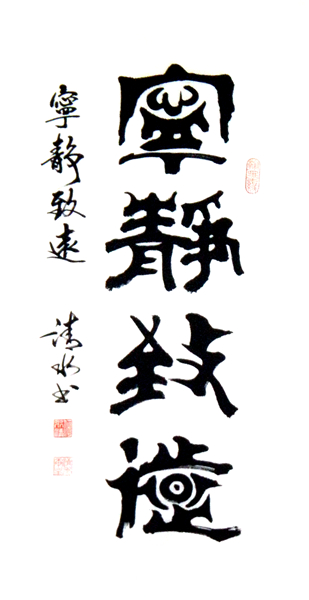 寧靜致遠
寧靜致遠 清水書